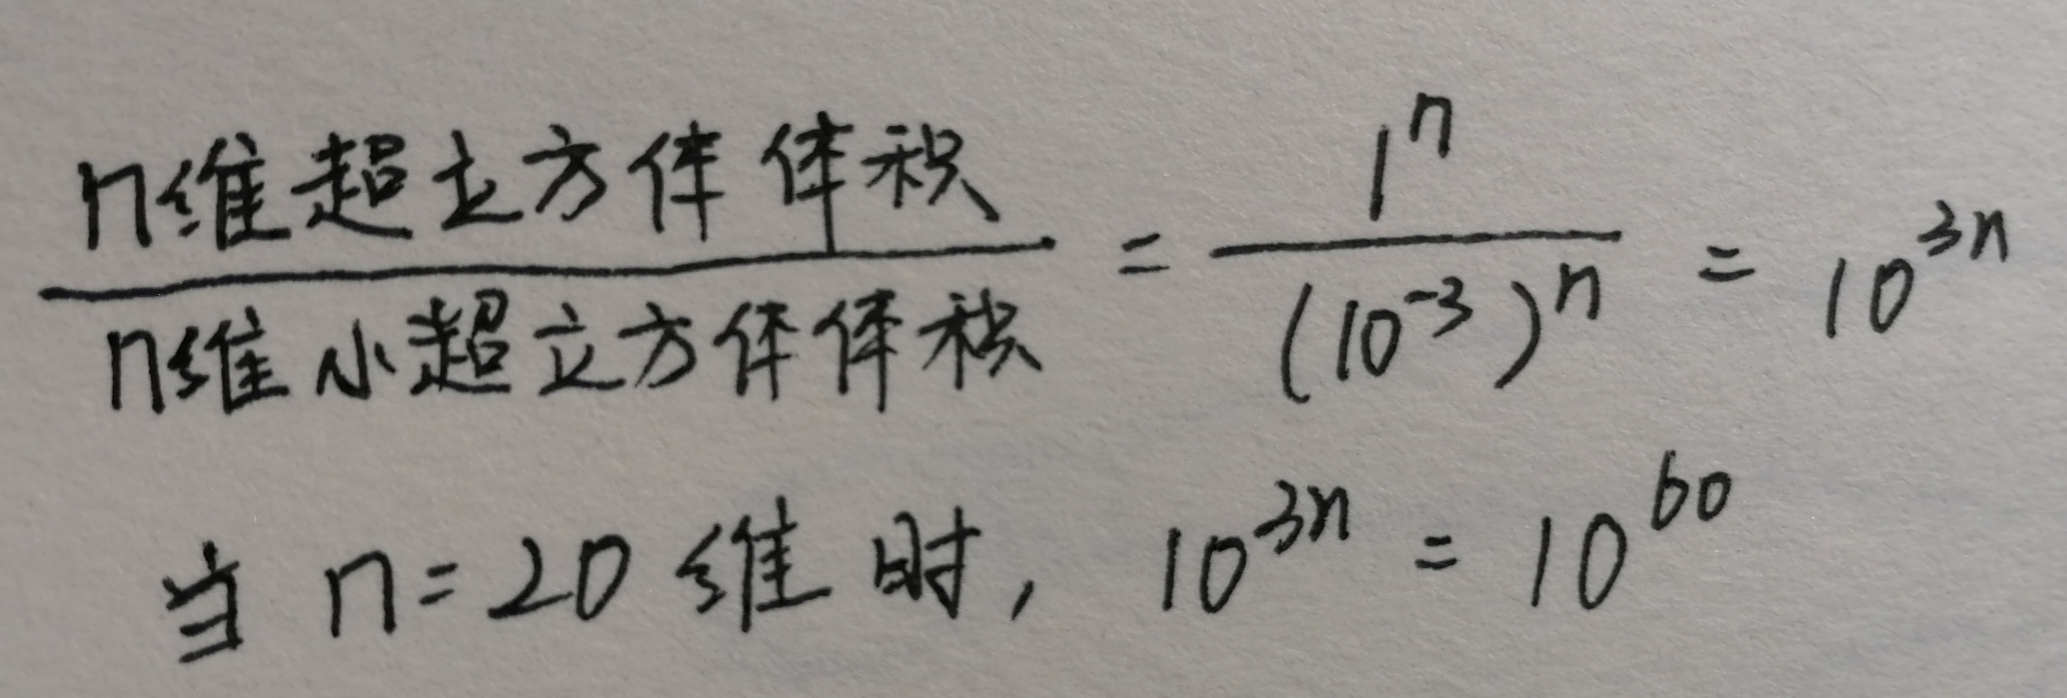 n维超立方体体积 / n维小超立方体体积 = 1^n / (10^-3)^n = 10^3n
当 n=20 维时, 10^3n = 10^60